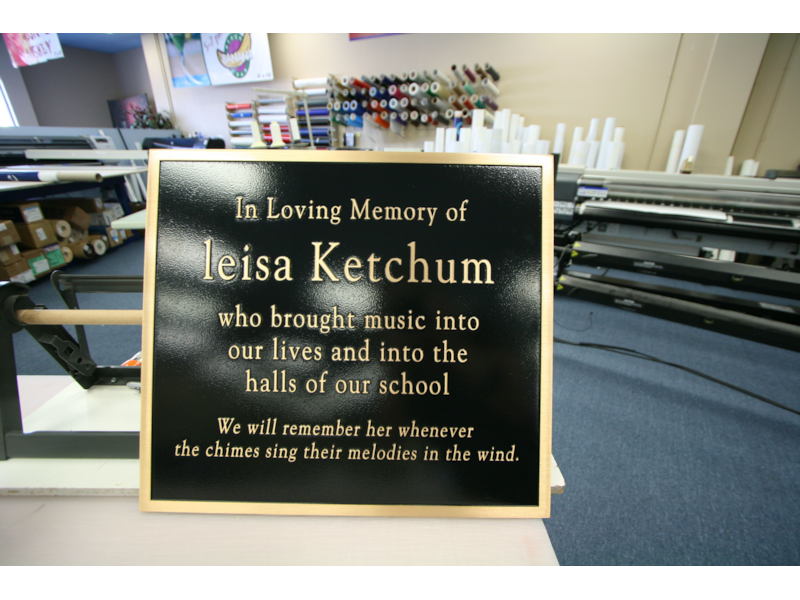 In Loving Memory of
leisa Ketchum
who brought music into
our lives and into the
halls of our school
We will remember her whenever
the chimes sing their melodies in the wind.